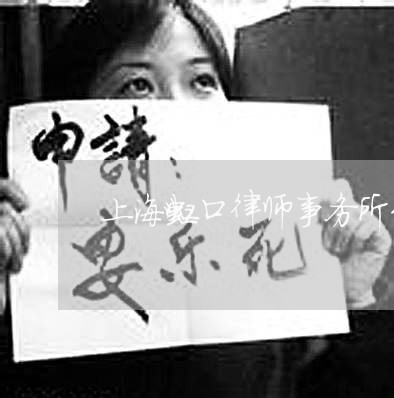 申請：
上海虹口律师事务所
安乐死